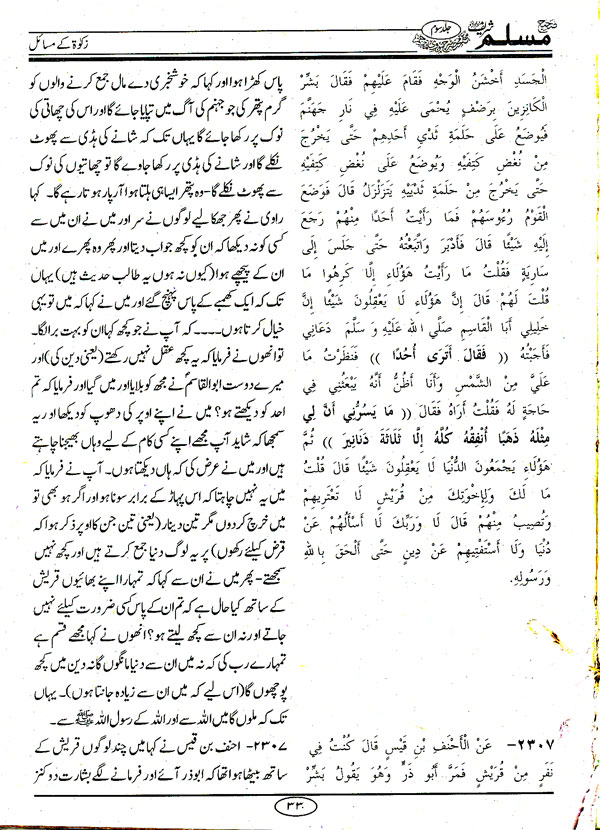 صحیح مسلم شریف
جلد سوم
زکوٰۃ کے مسائل
الْجَسَدِ أَخْشَنُ الْوَجْهِ فَقَامَ عَلَيْهِمْ فَقَالَ بَشِّرْ
الْكَانِزِينَ بِرَضْفٍ يُحْمَى عَلَيْهِ فِي نَارِ جَهَنَّمَ
فَيُوضَعُ عَلَى حَلَمَةِ ثَدْيِ أَحَدِهِمْ حَتَّى يَخْرُجَ
مِنْ نُغْضِ كَتِفَيْهِ وَيُوضَعُ عَلَى نُغْضِ كَتِفَيْهِ
حَتَّى يَخْرُجَ مِنْ حَلَمَةِ ثَدْيَيْهِ يَتَزَلْزَلُ قَالَ فَوَضَعَ
الْقَوْمُ رُءُوسَهُمْ فَمَا رَأَيْتُ أَحَدًا مِنْهُمْ رَجَعَ
إِلَيْهِ شَيْئًا قَالَ فَأَدْبَرَ وَاتَّبَعْتُهُ حَتَّى جَلَسَ إِلَى
سَارِيَةٍ فَقُلْتُ مَا رَأَيْتُ هَؤُلَاءِ إِلَّا كَرِهُوا مَا
قُلْتَ لَهُمْ قَالَ إِنَّ هَؤُلَاءِ لَا يَعْقِلُونَ شَيْئًا إِنَّ
خَلِيلِي أَبَا الْقَاسِمِ صَلَّي اللہ عَلَيْهِ وَ سَلَّمَ دَعَانِي
فَأَجَبْتُهُ (( فَقَالَ أَتَرَى أُحُدًا )) فَنَظَرْتُ مَا
عَلَيَّ مِنْ الشَّمْسِ وَأَنَا أَظُنُّ أَنَّهُ يَبْعَثُنِي فِي
حَاجَةٍ لَهُ فَقُلْتُ أَرَاهُ فَقَالَ (( مَا يَسُرُّنِي أَنَّ لِي
مِثْلَهُ ذَهَبًا أُنْفِقُهُ كُلَّهُ إِلَّا ثَلَاثَةَ دَنَانِيرَ )) ثُمَّ
هَؤُلَاءِ يَجْمَعُونَ الدُّنْيَا لَا يَعْقِلُونَ شَيْئًا قَالَ قُلْتُ
مَا لَكَ وَلِإِخْوَتِكَ مِنْ قُرَيْشٍ لَا تَعْتَرِيهِمْ
وَتُصِيبُ مِنْهُمْ قَالَ لَا وَرَبِّكَ لَا أَسْأَلُهُمْ عَنْ
دُنْيَا وَلَا أَسْتَفْتِيهِمْ عَنْ دِينٍ حَتَّى أَلْحَقَ بِاللهِ
وَرَسُولِهِ.
٢٣٠٧- عَنْ الْأَحْنَفِ بْنِ قَيْسٍ قَالَ كُنْتُ فِي
نَفَرٍ مِنْ قُرَيْشٍ فَمَرَّ أَبُو ذَرٍّ وَهُوَ يَقُولُ بَشِّرْ
پاس کھڑا ہوا اور کہا کہ خوشخبری دے مال جمع کرنے والوں کو
گرم پتھر کی جو جہنم کی آگ میں تپایا جائے گا اور اس کی چھاتی کی
نوک پر رکھا جائے گا یہاں تک کہ شانے کی ہڈی سے پھوٹ
نکلے گا اور شانے کی ہڈی پر رکھا جاوے گا تو چھاتیوں کی نوک
سے پھوٹ نکلے گا-وہ پتھر ایسا ہی ہلتا ہوا آرپار ہوتا رہے گا۔ کہا
راوی نے پھر جھکا لیے لوگوں نے سر اور میں نے ان میں سے
کسی کو نہ دیکھا کہ ان کو کچھ جواب دیتا اور پھر وہ پھرے اور میں
ان کے پیچھے ہوا (کیوں نہ ہوں یہ طالب حدیث ہیں) یہاں
تک کہ ایک کھمبے کے پاس پہنچ گئے اور میں نے کہا کہ میں تو یہی
خیال کرتا ہوں۔۔۔۔ کہ آپ نے جو کچھ کہا ان کو بہت برا لگا۔
تو انھوں نے فرمایا کہ یہ کچھ عقل نہیں رکھتے (یعنی دین کی) اور
میرے دوست ابوالقاسمؐ نے مجھ کو بلایا اور میں گیا اور فرمایا کہ تم
احد کو دیکھتے ہو؟ میں نے اپنے اوپر کی دھوپ کو دیکھا اور یہ
سمجھا کہ شاید آپ مجھے اپنے کسی کام کے لیے وہاں بھیجنا چاہتے
ہیں اور میں نے عرض کی کہ ہاں دیکھتا ہوں۔ آپ نے فرمایا کہ
میں یہ نہیں چاہتا کہ اس پہاڑ کے برابر سونا ہو اور اگر ہو بھی تو
میں خرچ کردوں مگر تین دینار (یعنی تین جن کا اوپر ذکر ہوا کہ
قرض کیلئے رکھوں) پر یہ لوگ دنیا جمع کرتے ہیں اور کچھ نہیں
سمجھتے- پھر میں نے ان سے کہا کہ تمہارا اپنے بھائیوں قریش
کے ساتھ کیا حال ہے کہ تم ان کے پاس کسی ضرورت کیلئے نہیں
جاتے اور نہ ان سے کچھ لیتے ہو؟ انھوں نے کہا مجھے قسم ہے
تمہارے رب کی کہ نہ میں ان سے دنیا مانگوں گا نہ دین میں کچھ
پوچھوں گا (اس لیے کہ میں ان سے زیادہ جانتا ہوں)۔ یہاں
تک کہ ملوں گا میں اللہ سے اور اللہ کے رسول اللہ ﷺ سے۔
۲۳۰۷- احنف بن قیس نے کہا میں چند لوگوں قریش کے
ساتھ بیٹھا ہوا تھا کہ ابوذر آئے اور فرمانے لگے بشارت دو کنز
۳۳